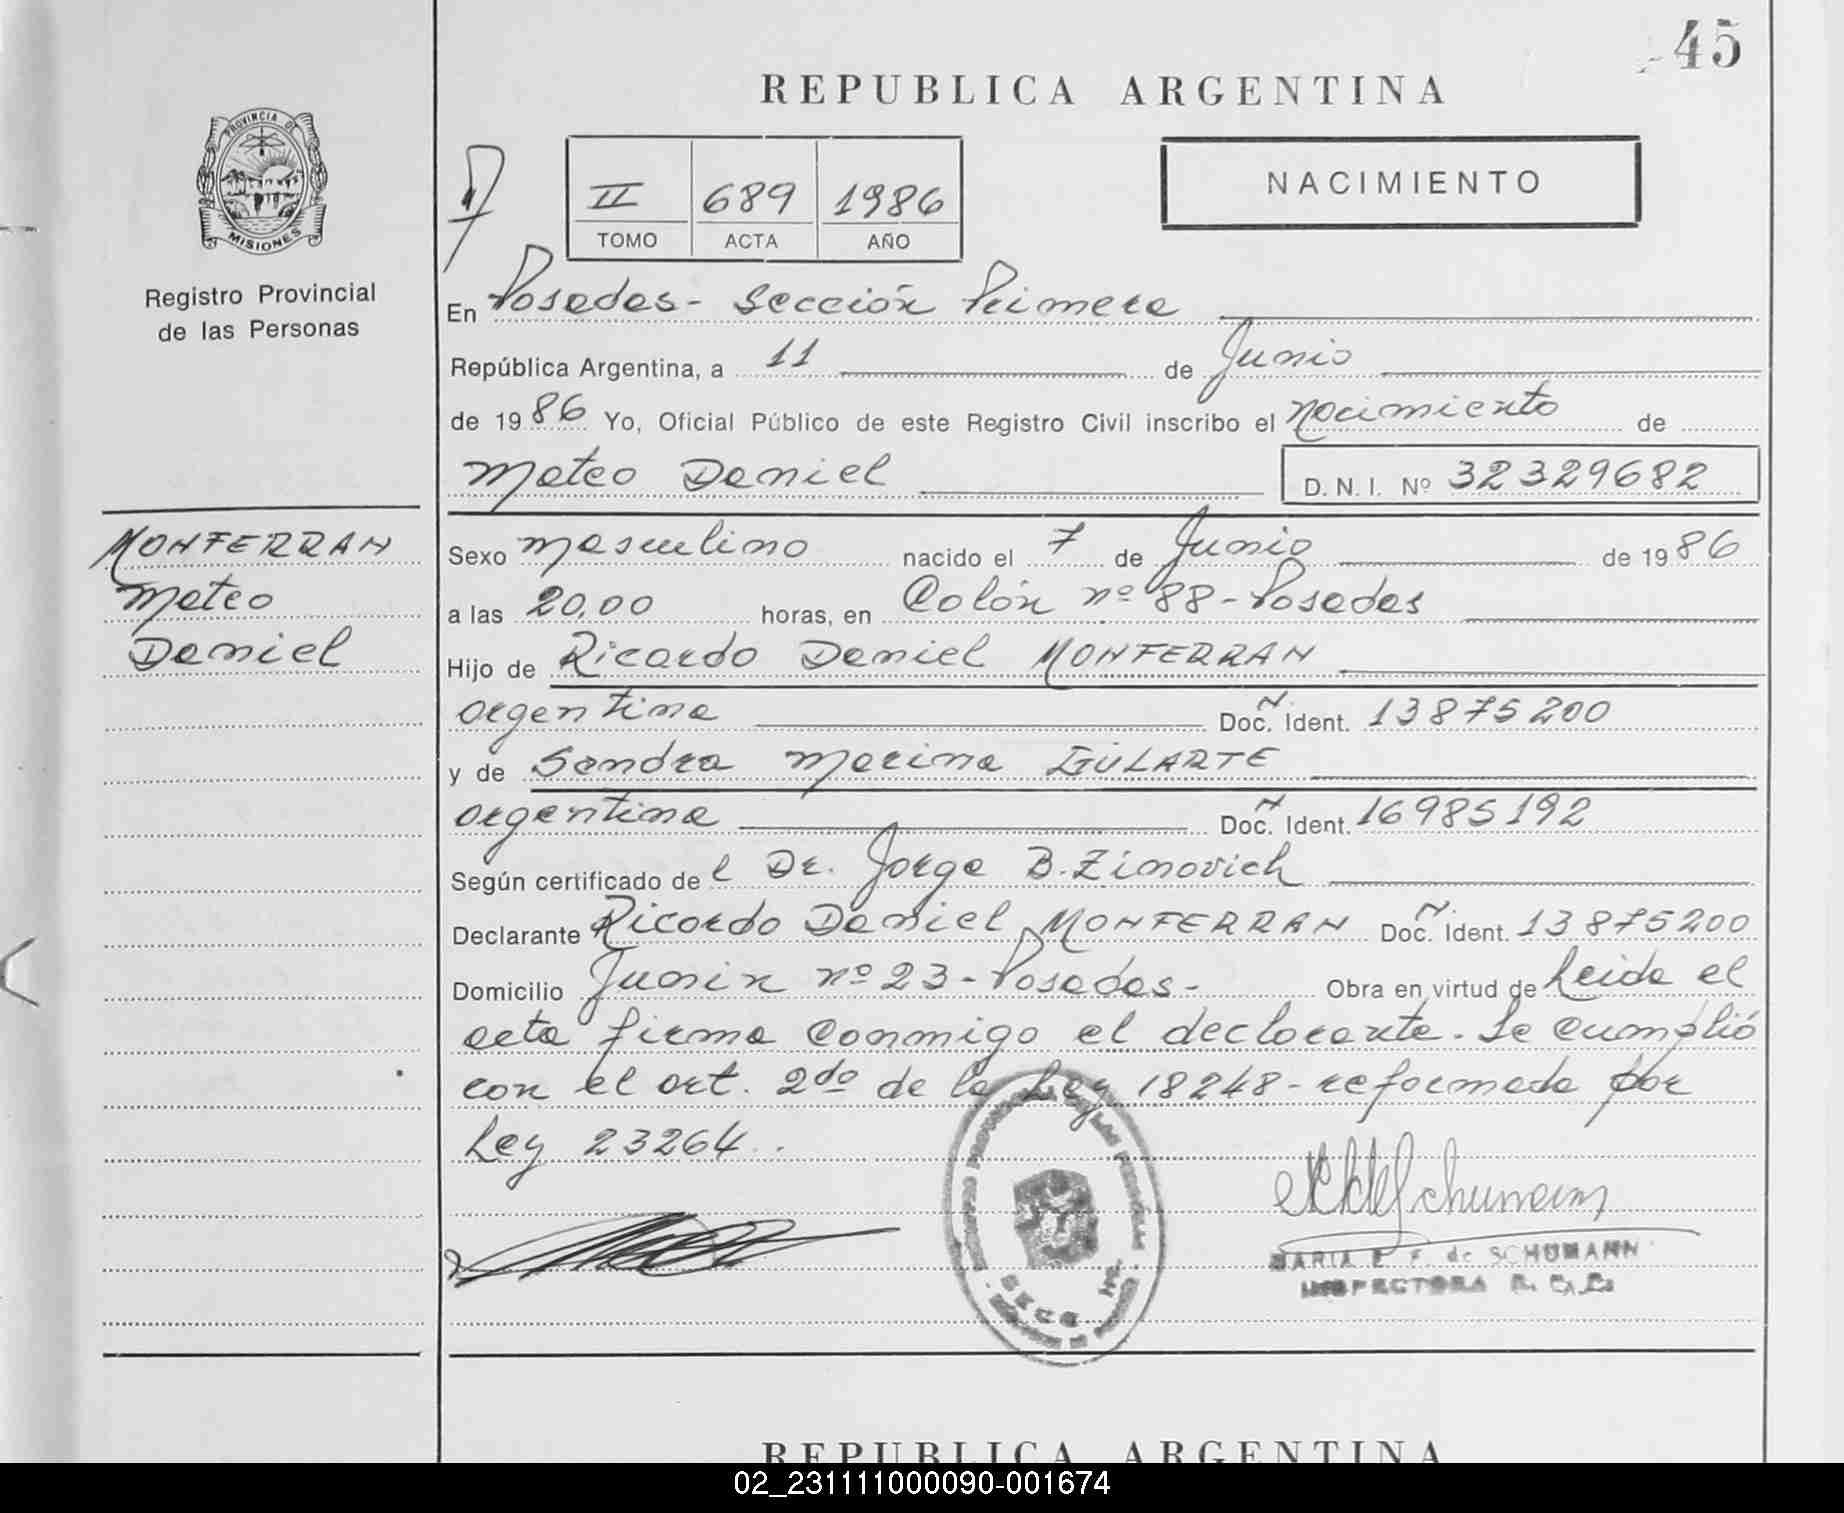 45
REPUBLICA ARGENTINA
PROVINCIA DE
MISIONES
Registro Provincial
de las Personas
II 689 1986
TOMO ACTA AÑO
NACIMIENTO
En Posadas - Sección Primera
República Argentina, a 11 de Junio
de 1986 Yo, Oficial Público de este Registro Civil inscribo el nacimiento de
Mateo Daniel D.N.I. Nº 32329682
MONFERRAN
Mateo
Daniel
Sexo masculino nacido el 7 de Junio de 1986
a las 20,00 horas, en Colón nº 88 - Posadas
Hijo de Ricardo Daniel MONFERRAN
argentina Doc. Ident. 13875200
y de Sandra Marina GULARTE
argentina Doc. Ident. 16985192
Según certificado del Dr. Jorge B. Zimovich
Declarante Ricardo Daniel MONFERRAN Doc. Ident. 13875200
Domicilio Junin nº 23 - Posadas - Obra en virtud de Leida el
acta firma conmigo el declarante. Se cumplió
con el art. 2do de la Ley 18248 - reformada por
Ley 23264..
MARIA E. F. de SCHUMANN
INSPECTORA R. C.
REPUBLICA ARGENTINA
02_231111000090-001674